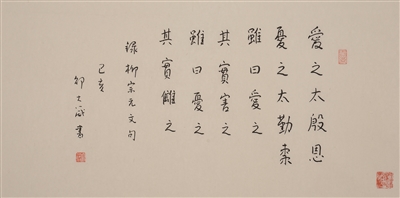 愛之太殷恩
憂之太勤
雖曰愛之
其實害之
雖曰憂之
其實讎之
録柳宗元文句
己亥
邵大箴書